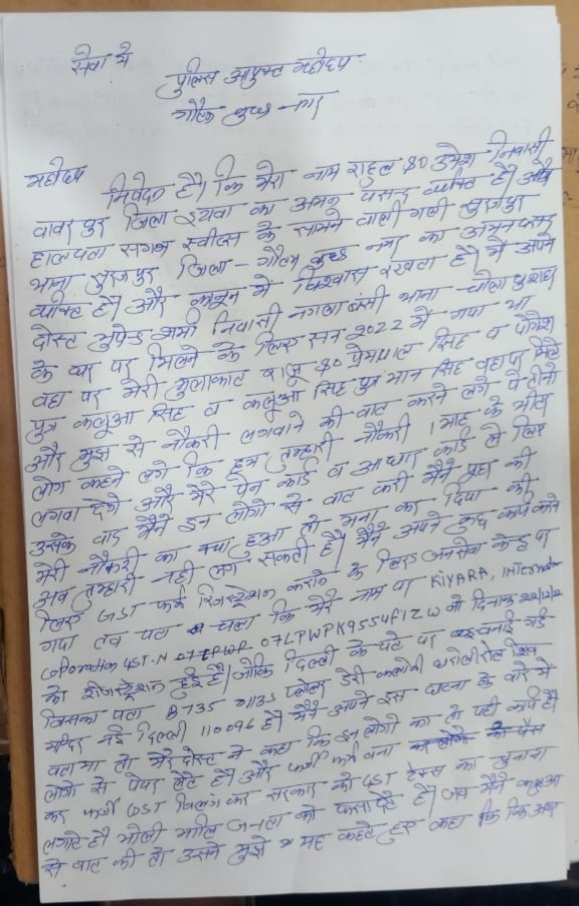 सेवा मे
पुलिस आयुक्त महोदय
गौतम बुध्द नगर
महोदय
निवेदन है। कि मेरा नाम राहुल S/O उमेश निवासी
जिला इटावा का अमन पसन्द व्यक्ति है। और
हालपता सगम स्वीट्स के सामने वाली गली सुरजपुर
थाना सुरजपुर जिला - गौतम बुध्द नगर का अमन पसन्द
व्यक्ति है। और कानून मे विश्वास रखता है। मैं अपने
दोस्त शर्मा निवासी नगला बंसी थाना
के घर पर मिलने के लिए सन 2022 मे गया था
वहा पर मेरी मुलाकात राजू S/O प्रेमपाल सिह व योगेश
पुत्र कलुआ सिह व कलुआ सिह पुत्र भान सिह वहा पर मिले
और मुझ से नौकरी लगवाने की बात करने लगे ये तीनो
लोग कहने लगे कि हम तुम्हारी नौकरी 1 माह के भीतर
लगवा देगे और मेरे पेन कार्ड व आधार कार्ड ले लिए
उसके बाद मैने इन लोगो से बात करी मैने पुछा की
मेरी नौकरी का क्या हुआ तो मना कर दिया की
अब तुम्हारी नही लग सकती है। मैंने अपने कुछ कार्य करने
लिए GST फर्म रजिस्ट्रेशन कराने के लिए जनसेवा केन्द्र पर
गया तब पता चला कि मेरे नाम पर KIYARA, INternation
Coporation GST.N 07LPWPK9554F1ZW को दिनाक
का रजिस्ट्रेशन हुई है। जोकि दिल्ली के पते पर बनाई गई
जिसका पता B-735 डेरी कलोनी शिव
मन्दिर नई दिल्ली 110096 है। मैंने अपने इस घटना के बारे मे
बताया तो मेरे दोस्त ने कहा कि इन लोगो का तो यही कार्य है
लोगो से पेपर लेते है। और फर्जी फर्म बना
कर फर्जी GST बिलिंग कर सरकार को GST टेक्स का चुनाना
लगाते है। भोली भाली जनता को फसा देते है। जब मैंने कलुआ
से बात की तो उसने मुझे यह कहते हुए कहा कि अगर